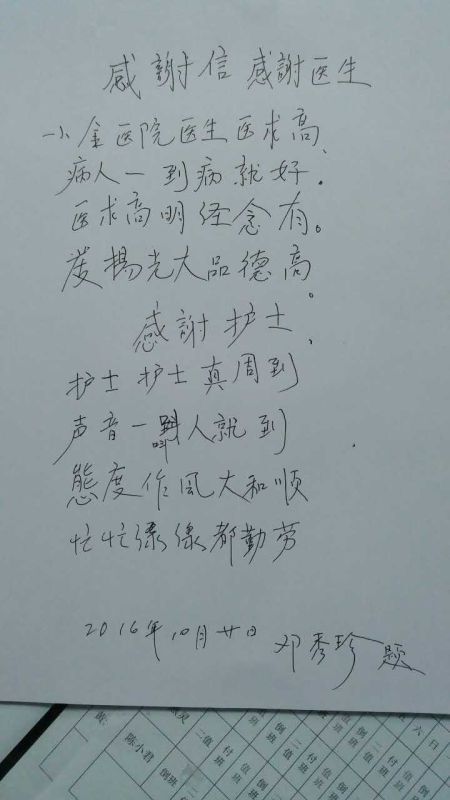 感謝信 感謝医生
小金医院医生医求高、
病人一到病就好.
医求高明经念有。
发揚光大品德高。
感謝护士、
护士护士真周到
声音一叫人就到
態度作风大和顺
忙忙漾漾都勤劳
2016年10月廿日 邓秀珍 题
陈小君 倒班 二值 付值班 倒班
六日